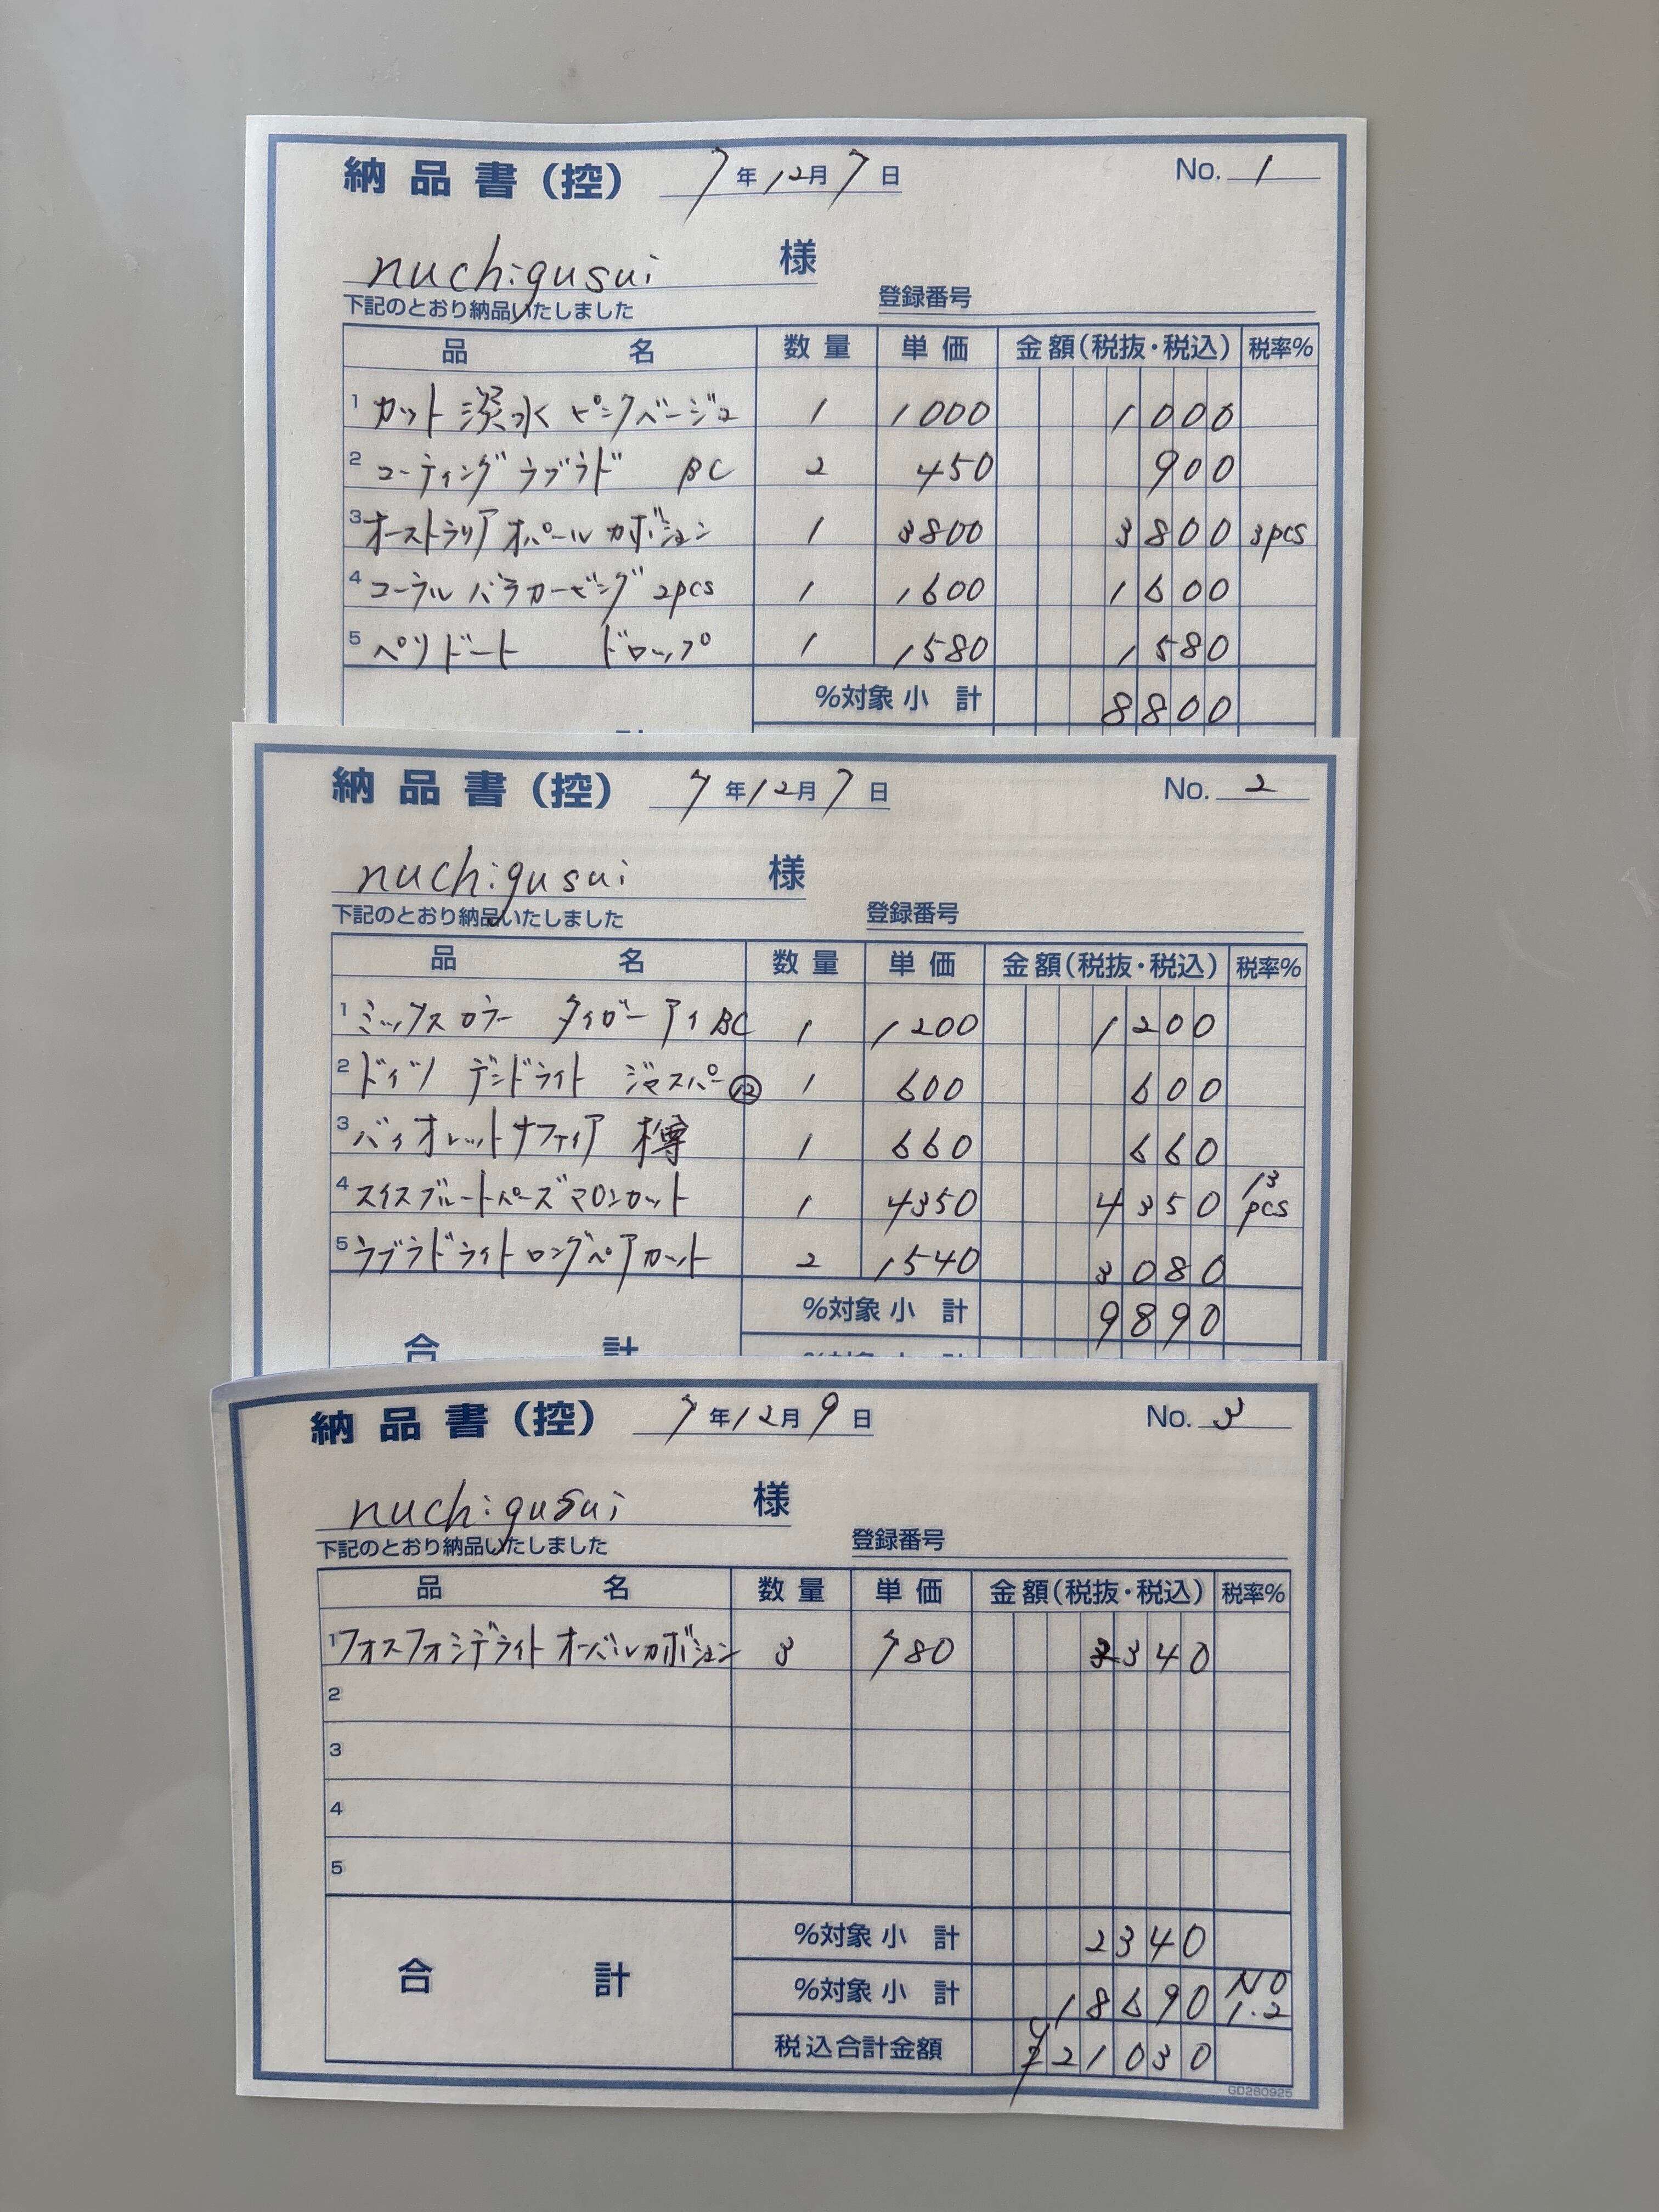 納品書(控) 7年12月7日 No. 1
nuchigusui 様
下記のとおり納品いたしました 登録番号
品名 数量 単価 金額(税抜・税込) 税率%
1 カット淡水 ピンクベージュ 1 1000 1000
2 コーティング ラブラド BC 2 450 900
3 オーストラリア オパール カボション 1 3800 3800 3pcs
4 コーラル バラカービング 2pcs 1 1600 1600
5 ペリドート ドロップ 1 1580 1580
%対象小計 8800
納品書(控) 7年12月7日 No. 2
nuchigusui 様
下記のとおり納品いたしました 登録番号
品名 数量 単価 金額(税抜・税込) 税率%
1 ミックスカラー タイガーアイ BC 1 1200 1200
2 ドイツ デンドライト ジャスパー⑫ 1 600 600
3 バイオレットサファイア 樽 1 660 660
4 スイスブルートパーズ マロンカット 1 4350 4350 13pcs
5 ラブラドライト ロングペアカット 2 1540 3080
%対象小計 9890
合計
納品書(控) 7年12月9日 No. 3
nuchigusui 様
下記のとおり納品いたしました 登録番号
品名 数量 単価 金額(税抜・税込) 税率%
1 フォスフォシデライト オーバルカボション 3 780 2340
2
3
4
5
%対象小計 2340
合計 %対象小計 18690 NO 1.2
税込合計金額 ¥21030
GD280925